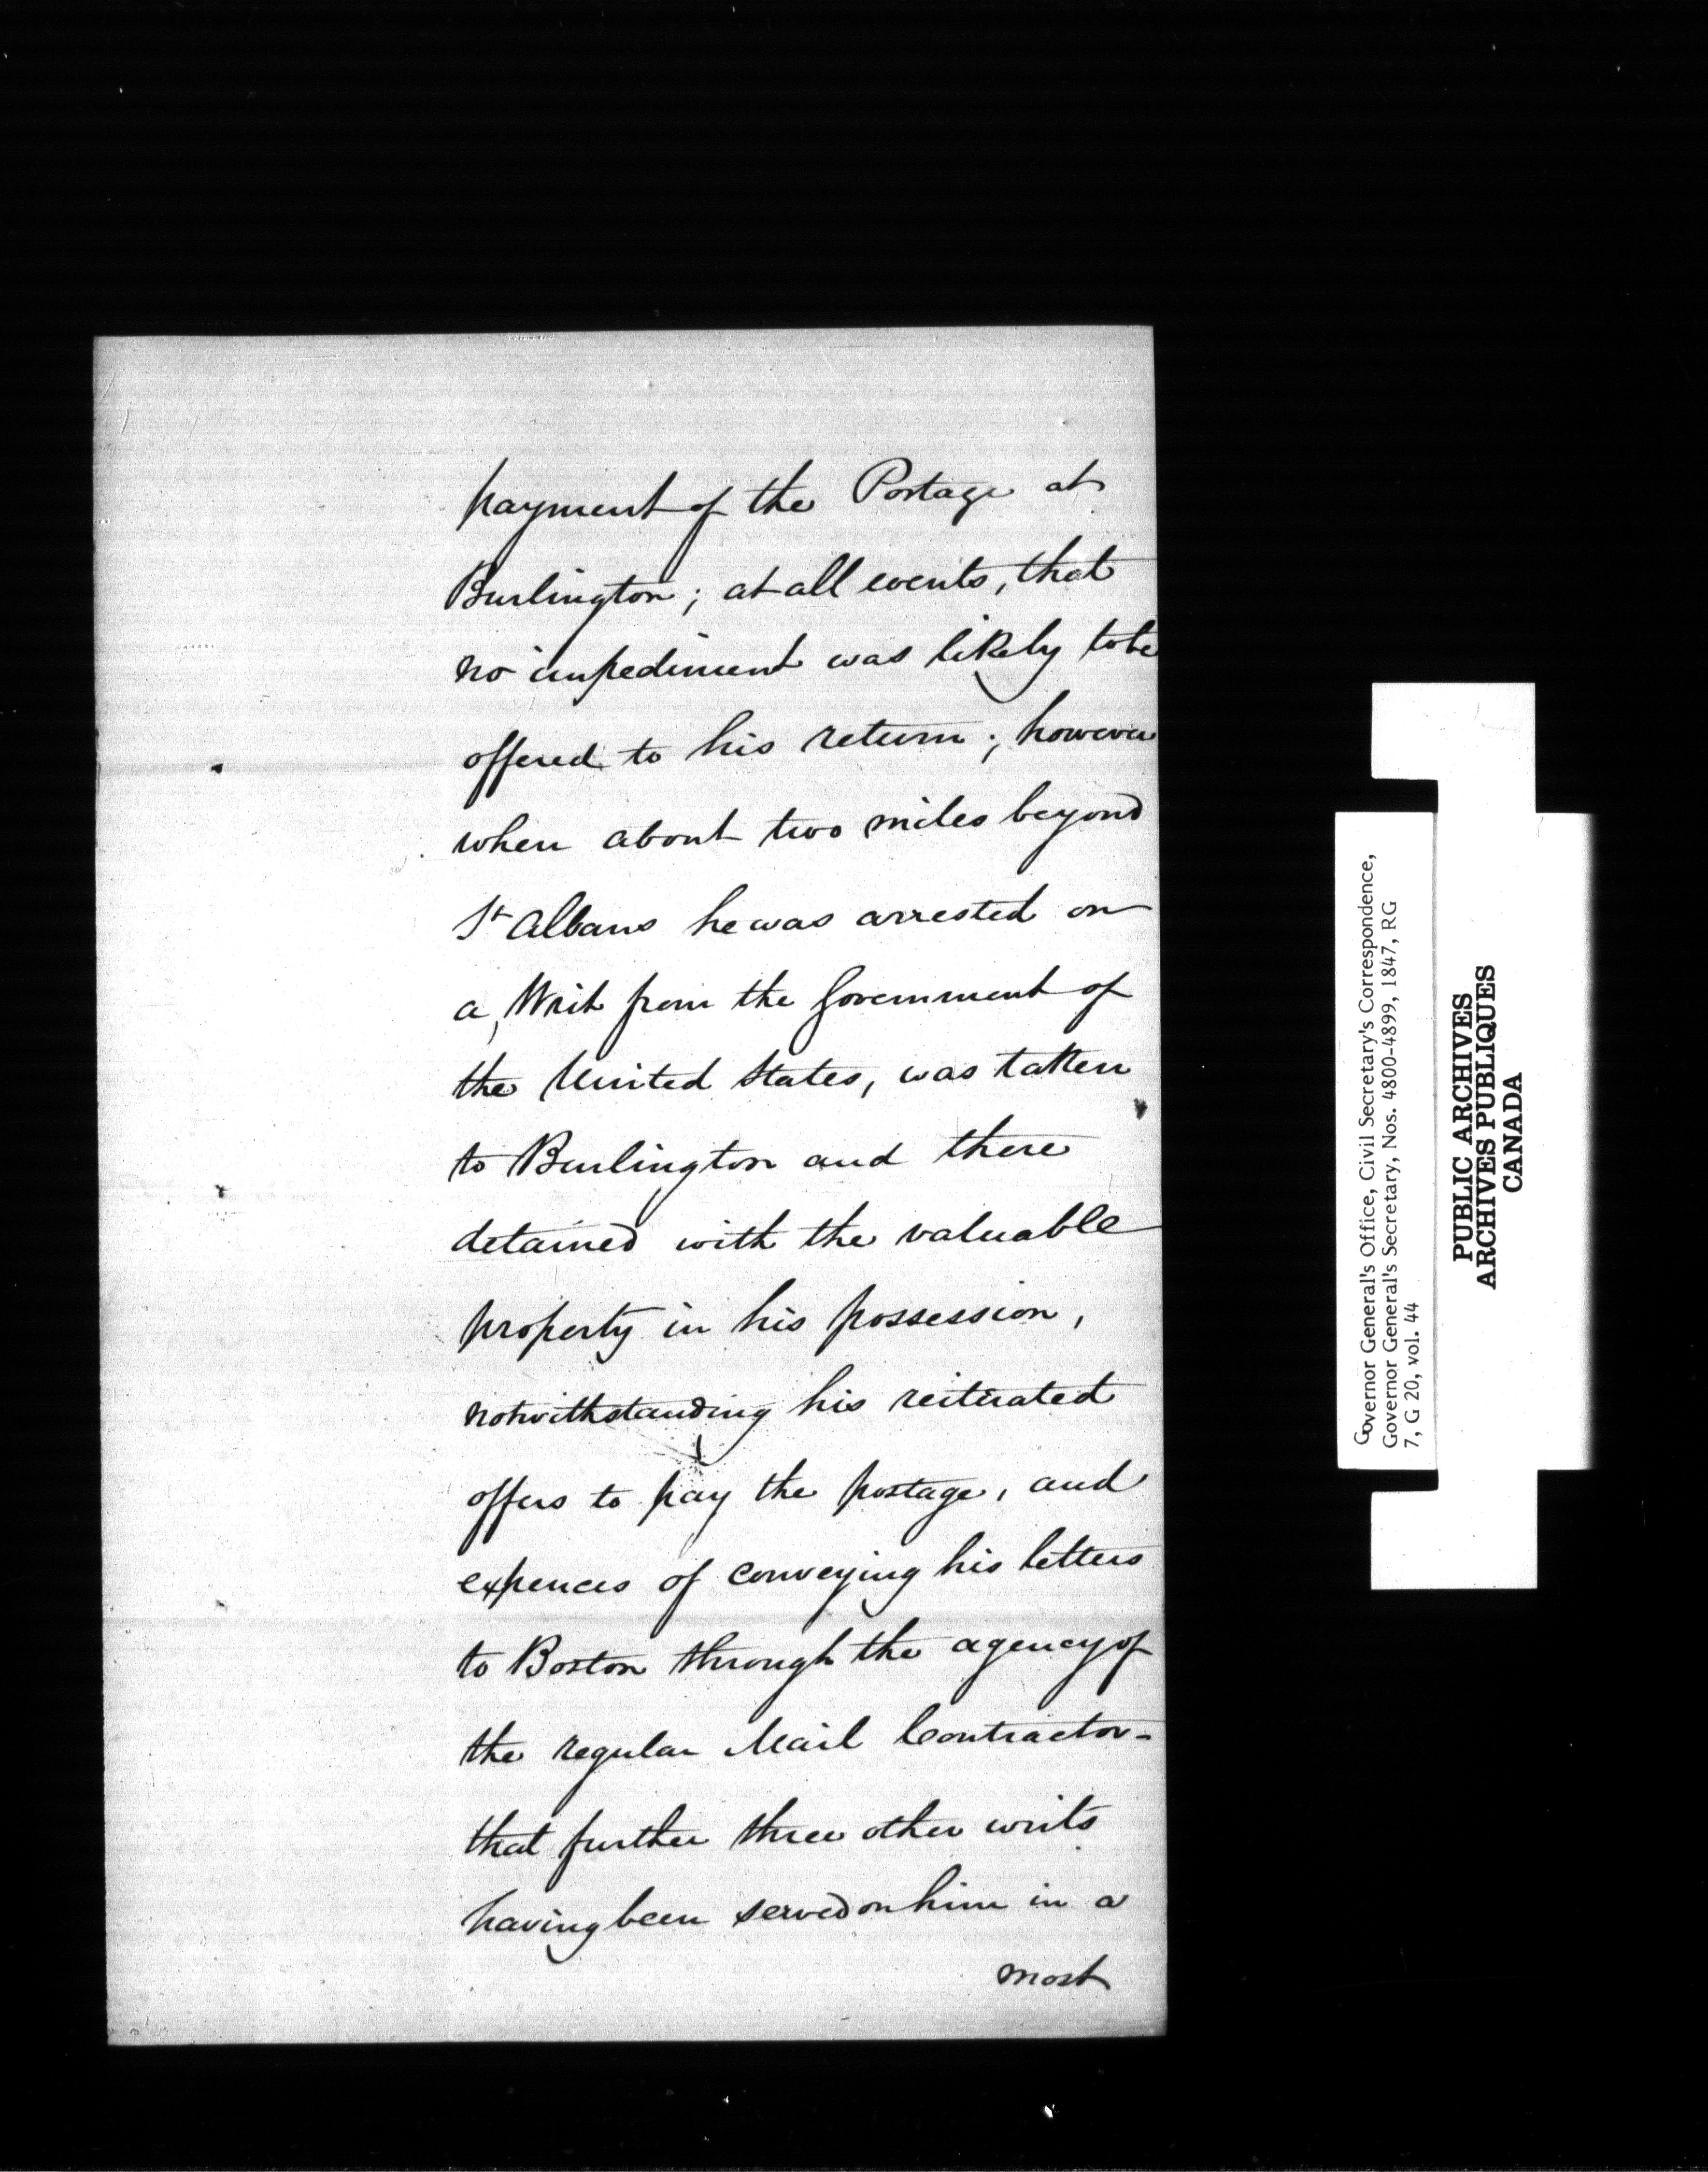 payment of the Postage at
Burlington; at all events, that
no impediment was likely to be
offered to his return; however
when about two miles beyond
St Albans he was arrested on
a Writ from the Government of
the United States, was taken
to Burlington and there
detained with the valuable
property in his possession,
notwithstanding his reiterated
offers to pay the postage, and
expences of conveying his letters
to Boston through the agency of
the regular Mail Contractor-
that further three other writs
having been served on him in a
most
Governor General's Office, Civil Secretary's Correspondence,
Governor General's Secretary, Nos. 4800-4899, 1847, RG
7, G 20, vol. 44
PUBLIC ARCHIVES
ARCHIVES PUBLIQUES
CANADA